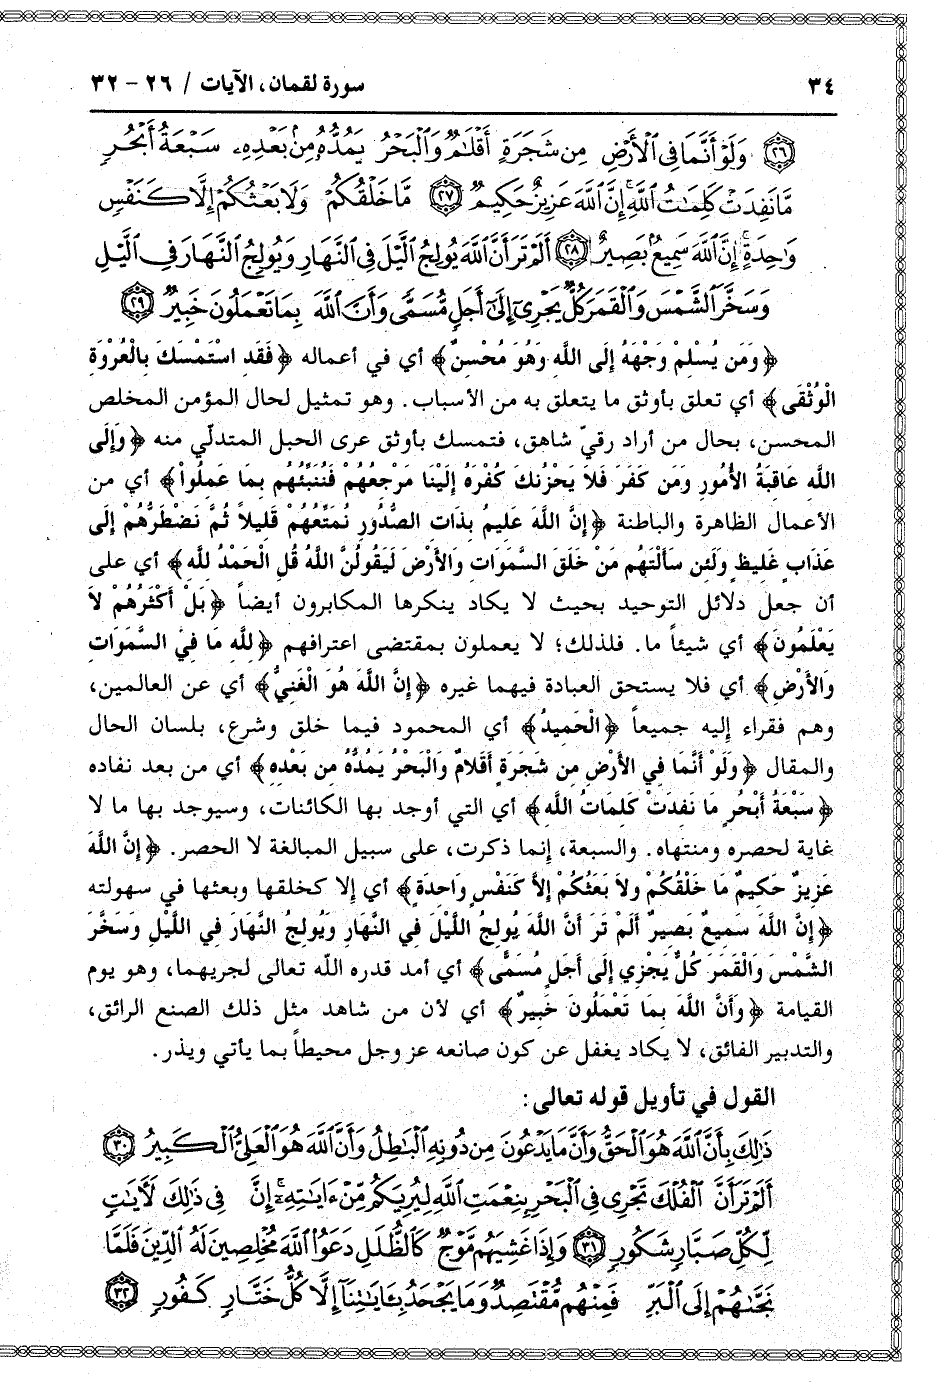 ٣٤ سورة لقمان، الآيات / ٢٦ - ٣٢
﴿٢٦﴾ وَلَوْ أَنَّمَا فِي ٱلْأَرْضِ مِن شَجَرَةٍ أَقْلَٰمٌ وَٱلْبَحْرُ يَمُدُّهُۥ مِنۢ بَعْدِهِۦ سَبْعَةُ أَبْحُرٍ
مَّا نَفِدَتْ كَلِمَٰتُ ٱللَّهِ ۗ إِنَّ ٱللَّهَ عَزِيزٌ حَكِيمٌ ﴿٢٧﴾ مَّا خَلْقُكُمْ وَلَا بَعْثُكُمْ إِلَّا كَنَفْسٍ
وَٰحِدَةٍ ۗ إِنَّ ٱللَّهَ سَمِيعٌۢ بَصِيرٌ ﴿٢٨﴾ أَلَمْ تَرَ أَنَّ ٱللَّهَ يُولِجُ ٱلَّيْلَ فِي ٱلنَّهَارِ وَيُولِجُ ٱلنَّهَارَ فِي ٱلَّيْلِ
وَسَخَّرَ ٱلشَّمْسَ وَٱلْقَمَرَ كُلٌّ يَجْرِيٓ إِلَىٰٓ أَجَلٍ مُّسَمًّى وَأَنَّ ٱللَّهَ بِمَا تَعْمَلُونَ خَبِيرٌ ﴿٢٩﴾
﴿وَمَن يُسْلِمْ وَجْهَهُ إِلَى اللَّهِ وَهُوَ مُحْسِنٌ﴾ أي في أعماله ﴿فَقَدِ اسْتَمْسَكَ بِالْعُرْوَةِ
الْوُثْقَى﴾ أي تعلق بأوثق ما يتعلق به من الأسباب. وهو تمثيل لحال المؤمن المخلص
المحسن، بحال من أراد رقيّ شاهق، فتمسك بأوثق عرى الحبل المتدلّي منه ﴿وَإِلَى
اللَّهِ عَاقِبَةُ الأُمُورِ وَمَن كَفَرَ فَلاَ يَحْزُنكَ كُفْرُهُ إِلَيْنَا مَرْجِعُهُمْ فَنُنَبِّئُهُم بِمَا عَمِلُواْ﴾ أي من
الأعمال الظاهرة والباطنة ﴿إِنَّ اللَّهَ عَلِيمٌ بِذَاتِ الصُّدُورِ نُمَتِّعُهُمْ قَلِيلاً ثُمَّ نَضْطَرُّهُمْ إِلَى
عَذَابٍ غَلِيظٍ وَلَئِن سَأَلْتَهُم مَنْ خَلَقَ السَّمَوَاتِ وَالأَرْضَ لَيَقُولُنَّ اللَّهُ قُلِ الْحَمْدُ للَّهِ﴾ أي على
أن جعل دلائل التوحيد بحيث لا يكاد ينكرها المكابرون أيضاً ﴿بَلْ أَكْثَرُهُمْ لاَ
يَعْلَمُونَ﴾ أي شيئاً ما. فلذلك؛ لا يعملون بمقتضى اعترافهم ﴿لِلَّهِ مَا فِي السَّمَوَاتِ
وَالأَرْضِ﴾ أي فلا يستحق العبادة فيهما غيره ﴿إِنَّ اللَّهَ هُوَ الْغَنِيُّ﴾ أي عن العالمين،
وهم فقراء إليه جميعاً ﴿الْحَمِيدُ﴾ أي المحمود فيما خلق وشرع، بلسان الحال
والمقال ﴿وَلَوْ أَنَّمَا فِي الأَرْضِ مِن شَجَرَةٍ أَقْلاَمٌ وَالْبَحْرُ يَمُدُّهُ مِن بَعْدِهِ﴾ أي من بعد نفاده
﴿سَبْعَةُ أَبْحُرٍ مَا نَفِدَتْ كَلِمَاتُ اللَّهِ﴾ أي التي أوجد بها الكائنات، وسيوجد بها ما لا
غاية لحصره ومنتهاه. والسبعة، إنما ذكرت، على سبيل المبالغة لا الحصر. ﴿إِنَّ اللَّهَ
عَزِيزٌ حَكِيمٌ مَا خَلْقُكُمْ وَلاَ بَعْثُكُمْ إِلاَّ كَنَفْسٍ وَاحِدَةٍ﴾ أي إلا كخلقها وبعثها في سهولته
﴿إِنَّ اللَّهَ سَمِيعٌ بَصِيرٌ أَلَمْ تَرَ أَنَّ اللَّهَ يُولِجُ اللَّيْلَ فِي النَّهَارِ وَيُولِجُ النَّهَارَ فِي اللَّيْلِ وَسَخَّرَ
الشَّمْسَ وَالْقَمَرَ كُلٌّ يَجْرِي إِلَى أَجَلٍ مُسَمًّى﴾ أي أمد قدره الله تعالى لجريهما، وهو يوم
القيامة ﴿وَأَنَّ اللَّهَ بِمَا تَعْمَلُونَ خَبِيرٌ﴾ أي لأن من شاهد مثل ذلك الصنع الرائق،
والتدبير الفائق، لا يكاد يغفل عن كون صانعه عز وجل محيطاً بما يأتي ويذر.
القول في تأويل قوله تعالى:
ذَٰلِكَ بِأَنَّ ٱللَّهَ هُوَ ٱلْحَقُّ وَأَنَّ مَا يَدْعُونَ مِن دُونِهِ ٱلْبَٰطِلُ وَأَنَّ ٱللَّهَ هُوَ ٱلْعَلِيُّ ٱلْكَبِيرُ ﴿٣٠﴾
أَلَمْ تَرَ أَنَّ ٱلْفُلْكَ تَجْرِي فِي ٱلْبَحْرِ بِنِعْمَتِ ٱللَّهِ لِيُرِيَكُم مِّنْ ءَايَٰتِهِۦٓ ۚ إِنَّ فِي ذَٰلِكَ لَءَايَٰتٍ
لِّكُلِّ صَبَّارٍ شَكُورٍ ﴿٣١﴾ وَإِذَا غَشِيَهُم مَّوْجٌ كَٱلظُّلَلِ دَعَوُا۟ ٱللَّهَ مُخْلِصِينَ لَهُ ٱلدِّينَ فَلَمَّا
نَجَّىٰهُمْ إِلَى ٱلْبَرِّ فَمِنْهُم مُّقْتَصِدٌ ۚ وَمَا يَجْحَدُ بِـَٔايَٰتِنَآ إِلَّا كُلُّ خَتَّارٍ كَفُورٍ ﴿٣٢﴾